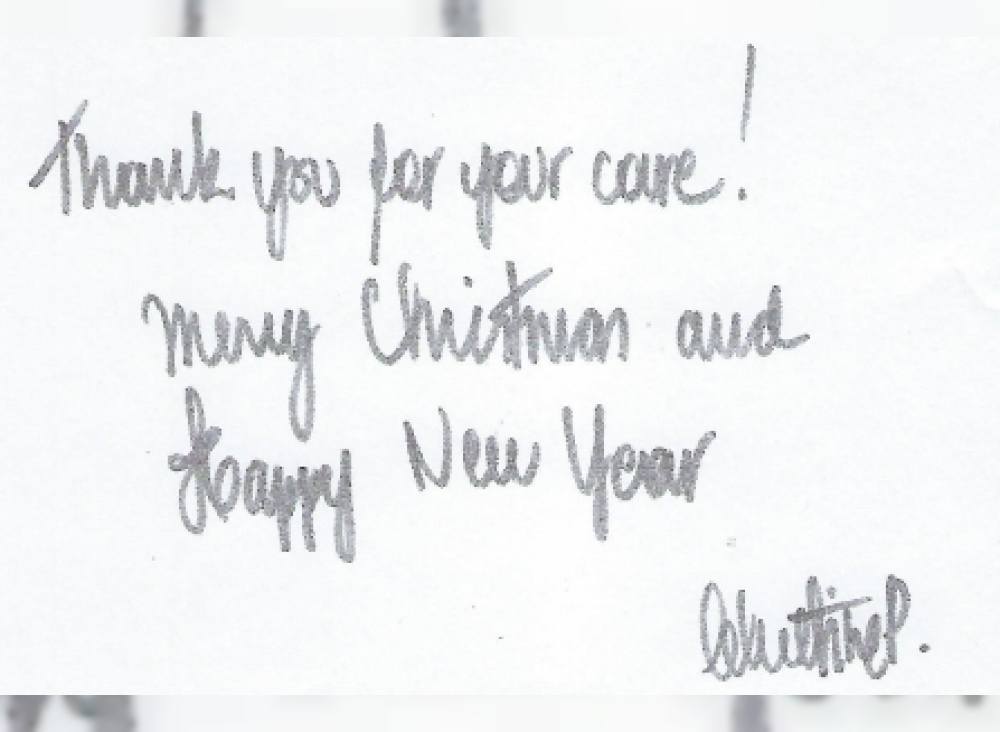 Thank you for your care!
Merry Christmas and
Happy New Year